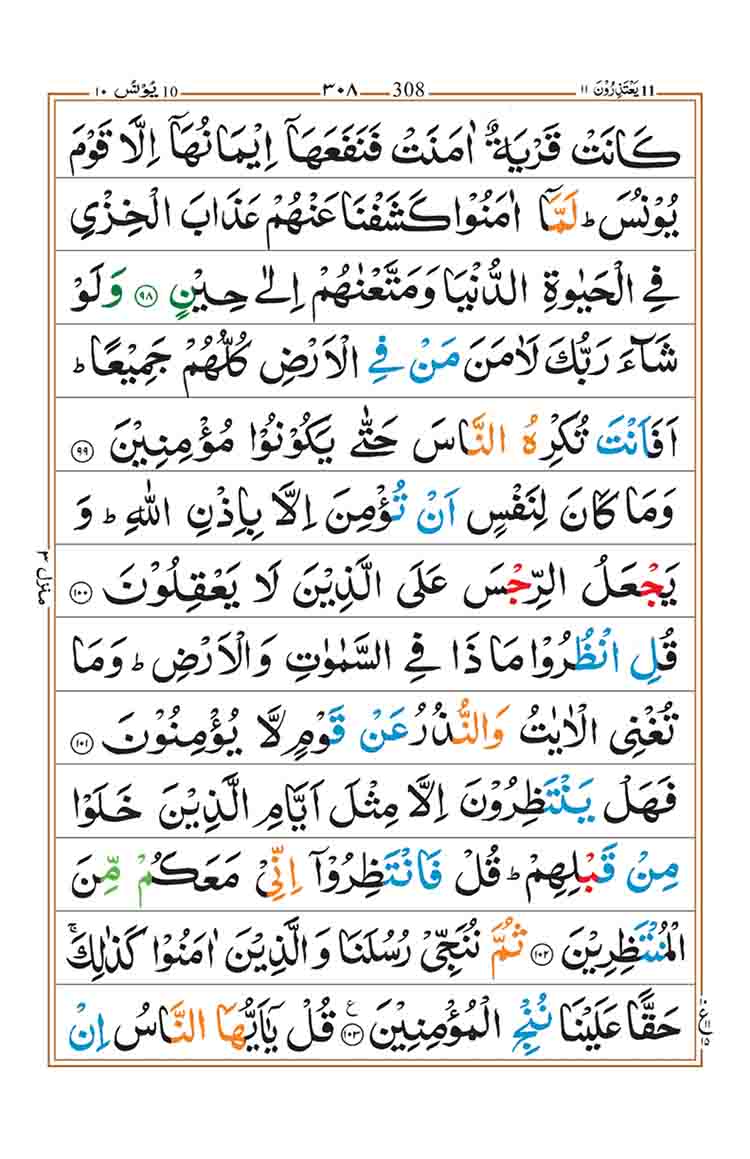 11 یَعْتَذِرُوْنَ ١١ 308 ٣٠٨ 10 یُوْنُس ١٠
كَانَتْ قَرْیَةٌ اٰمَنَتْ فَنَفَعَهَاۤ اِیْمَانُهَاۤ اِلَّا قَوْمَ
یُوْنُسَ ؕ لَمَّاۤ اٰمَنُوْا كَشَفْنَا عَنْهُمْ عَذَابَ الْخِزْیِ
فِی الْحَیٰوةِ الدُّنْیَا وَ مَتَّعْنٰهُمْ اِلٰی حِیْنٍ ﴿۹۸﴾ وَ لَوْ
شَآءَ رَبُّكَ لَاٰمَنَ مَنْ فِی الْاَرْضِ كُلُّهُمْ جَمِیْعًا ؕ
اَفَاَنْتَ تُكْرِهُ النَّاسَ حَتّٰی یَكُوْنُوْا مُؤْمِنِیْنَ ﴿۹۹﴾
وَمَا كَانَ لِنَفْسٍ اَنْ تُؤْمِنَ اِلَّا بِاِذْنِ اللّٰهِ ؕ وَ
یَجْعَلُ الرِّجْسَ عَلَی الَّذِیْنَ لَا یَعْقِلُوْنَ ﴿۱۰۰﴾
قُلِ انْظُرُوْا مَا ذَا فِی السَّمٰوٰتِ وَالْاَرْضِ ؕ وَمَا
تُغْنِی الْاٰیٰتُ وَالنُّذُرُ عَنْ قَوْمٍ لَّا یُؤْمِنُوْنَ ﴿۱۰۱﴾
فَهَلْ یَنْتَظِرُوْنَ اِلَّا مِثْلَ اَیَّامِ الَّذِیْنَ خَلَوْا
مِنْ قَبْلِهِمْ ؕ قُلْ فَانْتَظِرُوْۤا اِنِّیْ مَعَكُمْ مِّنَ
الْمُنْتَظِرِیْنَ ﴿۱۰۲﴾ ثُمَّ نُنَجِّیْ رُسُلَنَا وَ الَّذِیْنَ اٰمَنُوْا كَذٰلِكَ ۚ
حَقًّا عَلَیْنَا نُنْجِ الْمُؤْمِنِیْنَ ﴿۱۰۳﴾ ع قُلْ یٰۤاَیُّهَا النَّاسُ اِنْ
منزل ٣